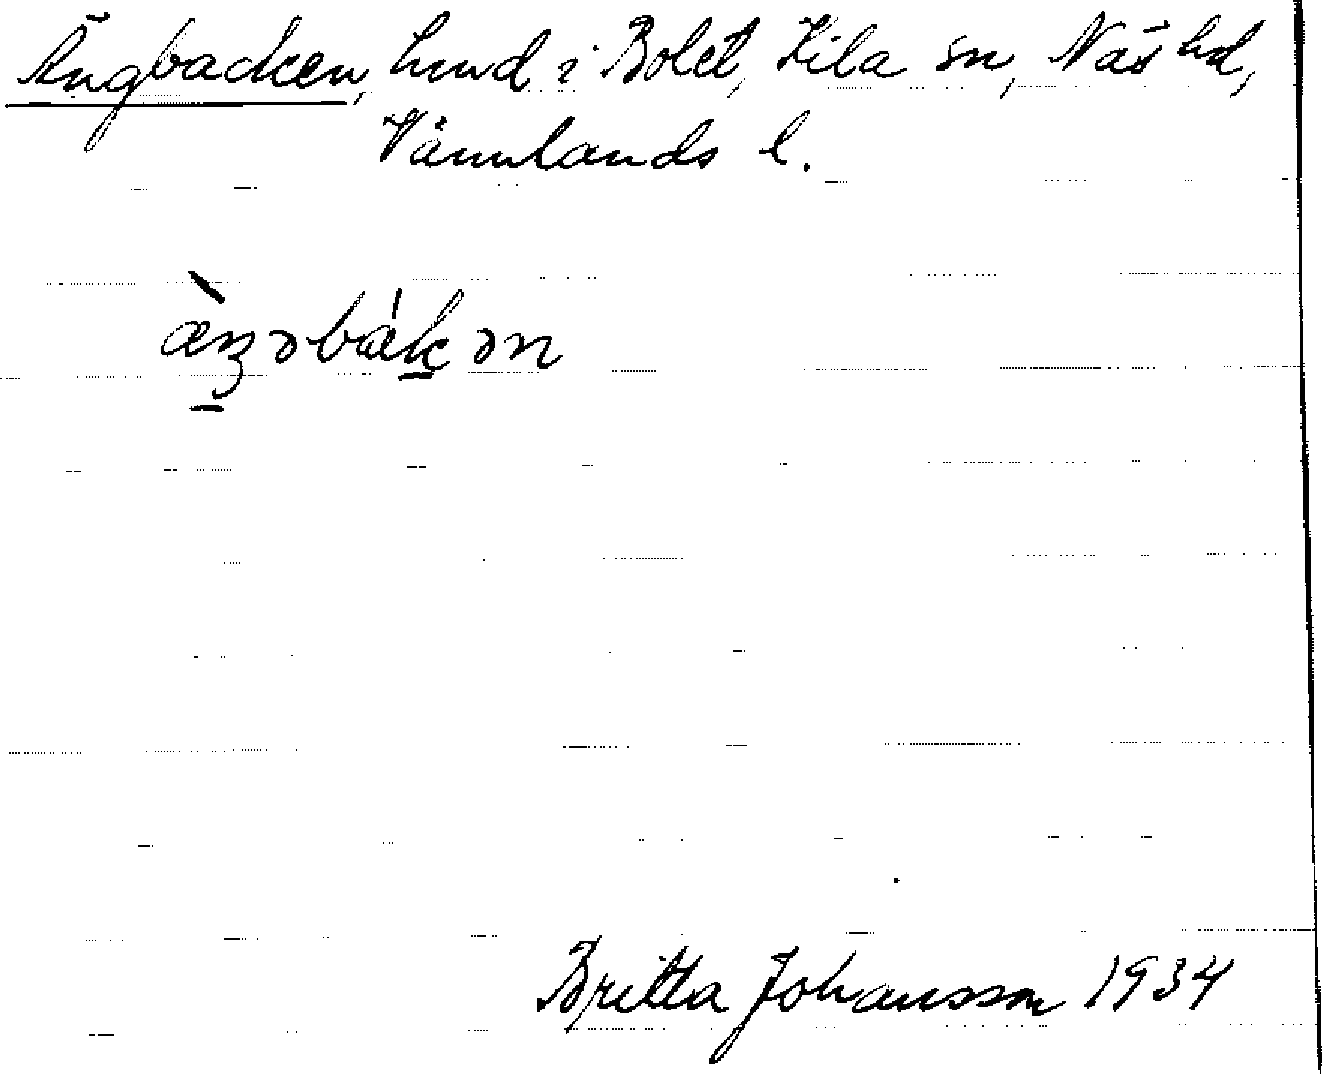 Ängbacken, lund i Bolet, Kila sn, Näs hd,
Värmlands l.
æ̀ŋəbákən
Britta Johansson 1934